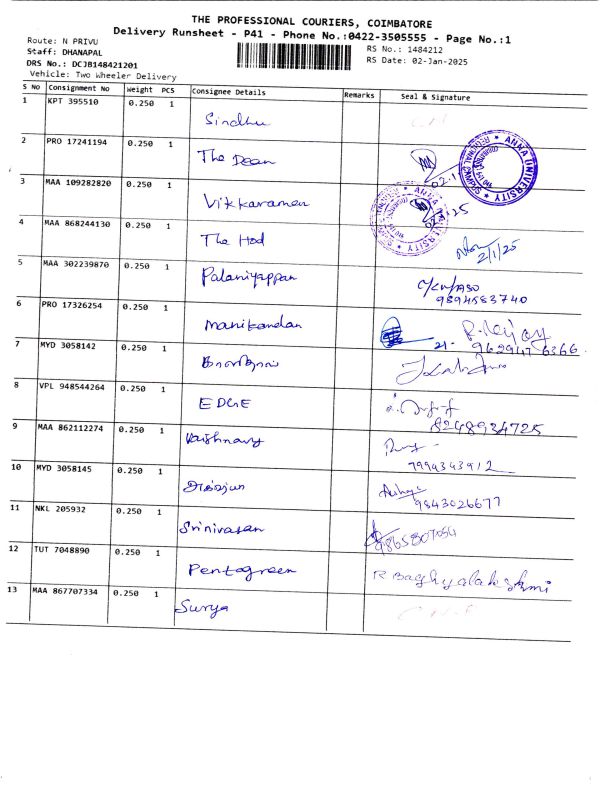 THE PROFESSIONAL COURIERS, COIMBATORE
Delivery Runsheet - P41 - Phone No.:0422-3505555 - Page No.:1
Route: N PRIVU
RS No.: 1484212
Staff: DHANAPAL
RS Date: 02-Jan-2025
DRS No.: DCJB148421201
Vehicle: Two Wheeler Delivery
S No Consignment No Weight PCS Consignee Details Remarks Seal & Signature
1 KPT 395510 0.250 1 Sindhu
2 PRO 17241194 0.250 1 The Dean
3 MAA 109282820 0.250 1 Vikkaraman
4 MAA 868244130 0.250 1 The Hod 2/1/25
5 MAA 302239870 0.250 1 Palaniyappan
9894583740
6 PRO 17326254 0.250 1 Manikandan
7 MYD 3058142 0.250 1
8 VPL 948544264 0.250 1 EDGE
8248934725
9 MAA 862112274 0.250 1 Vaishnavy
7994343912
10 MYD 3058145 0.250 1
9843026677
11 NKL 205932 0.250 1 Srinivasan
12 TUT 7048890 0.250 1 Pentagreen R Baghyalakshmi
13 MAA 867707334 0.250 1 Surya
ANNA UNIVERSITY